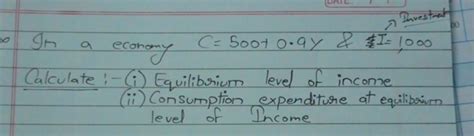 DATE
Investment
In a economy C = 500 + 0.9Y & I = 1,000
Calculate :- (i) Equilibrium level of income
(ii) Consumption expenditure at equilibrium
level of Income